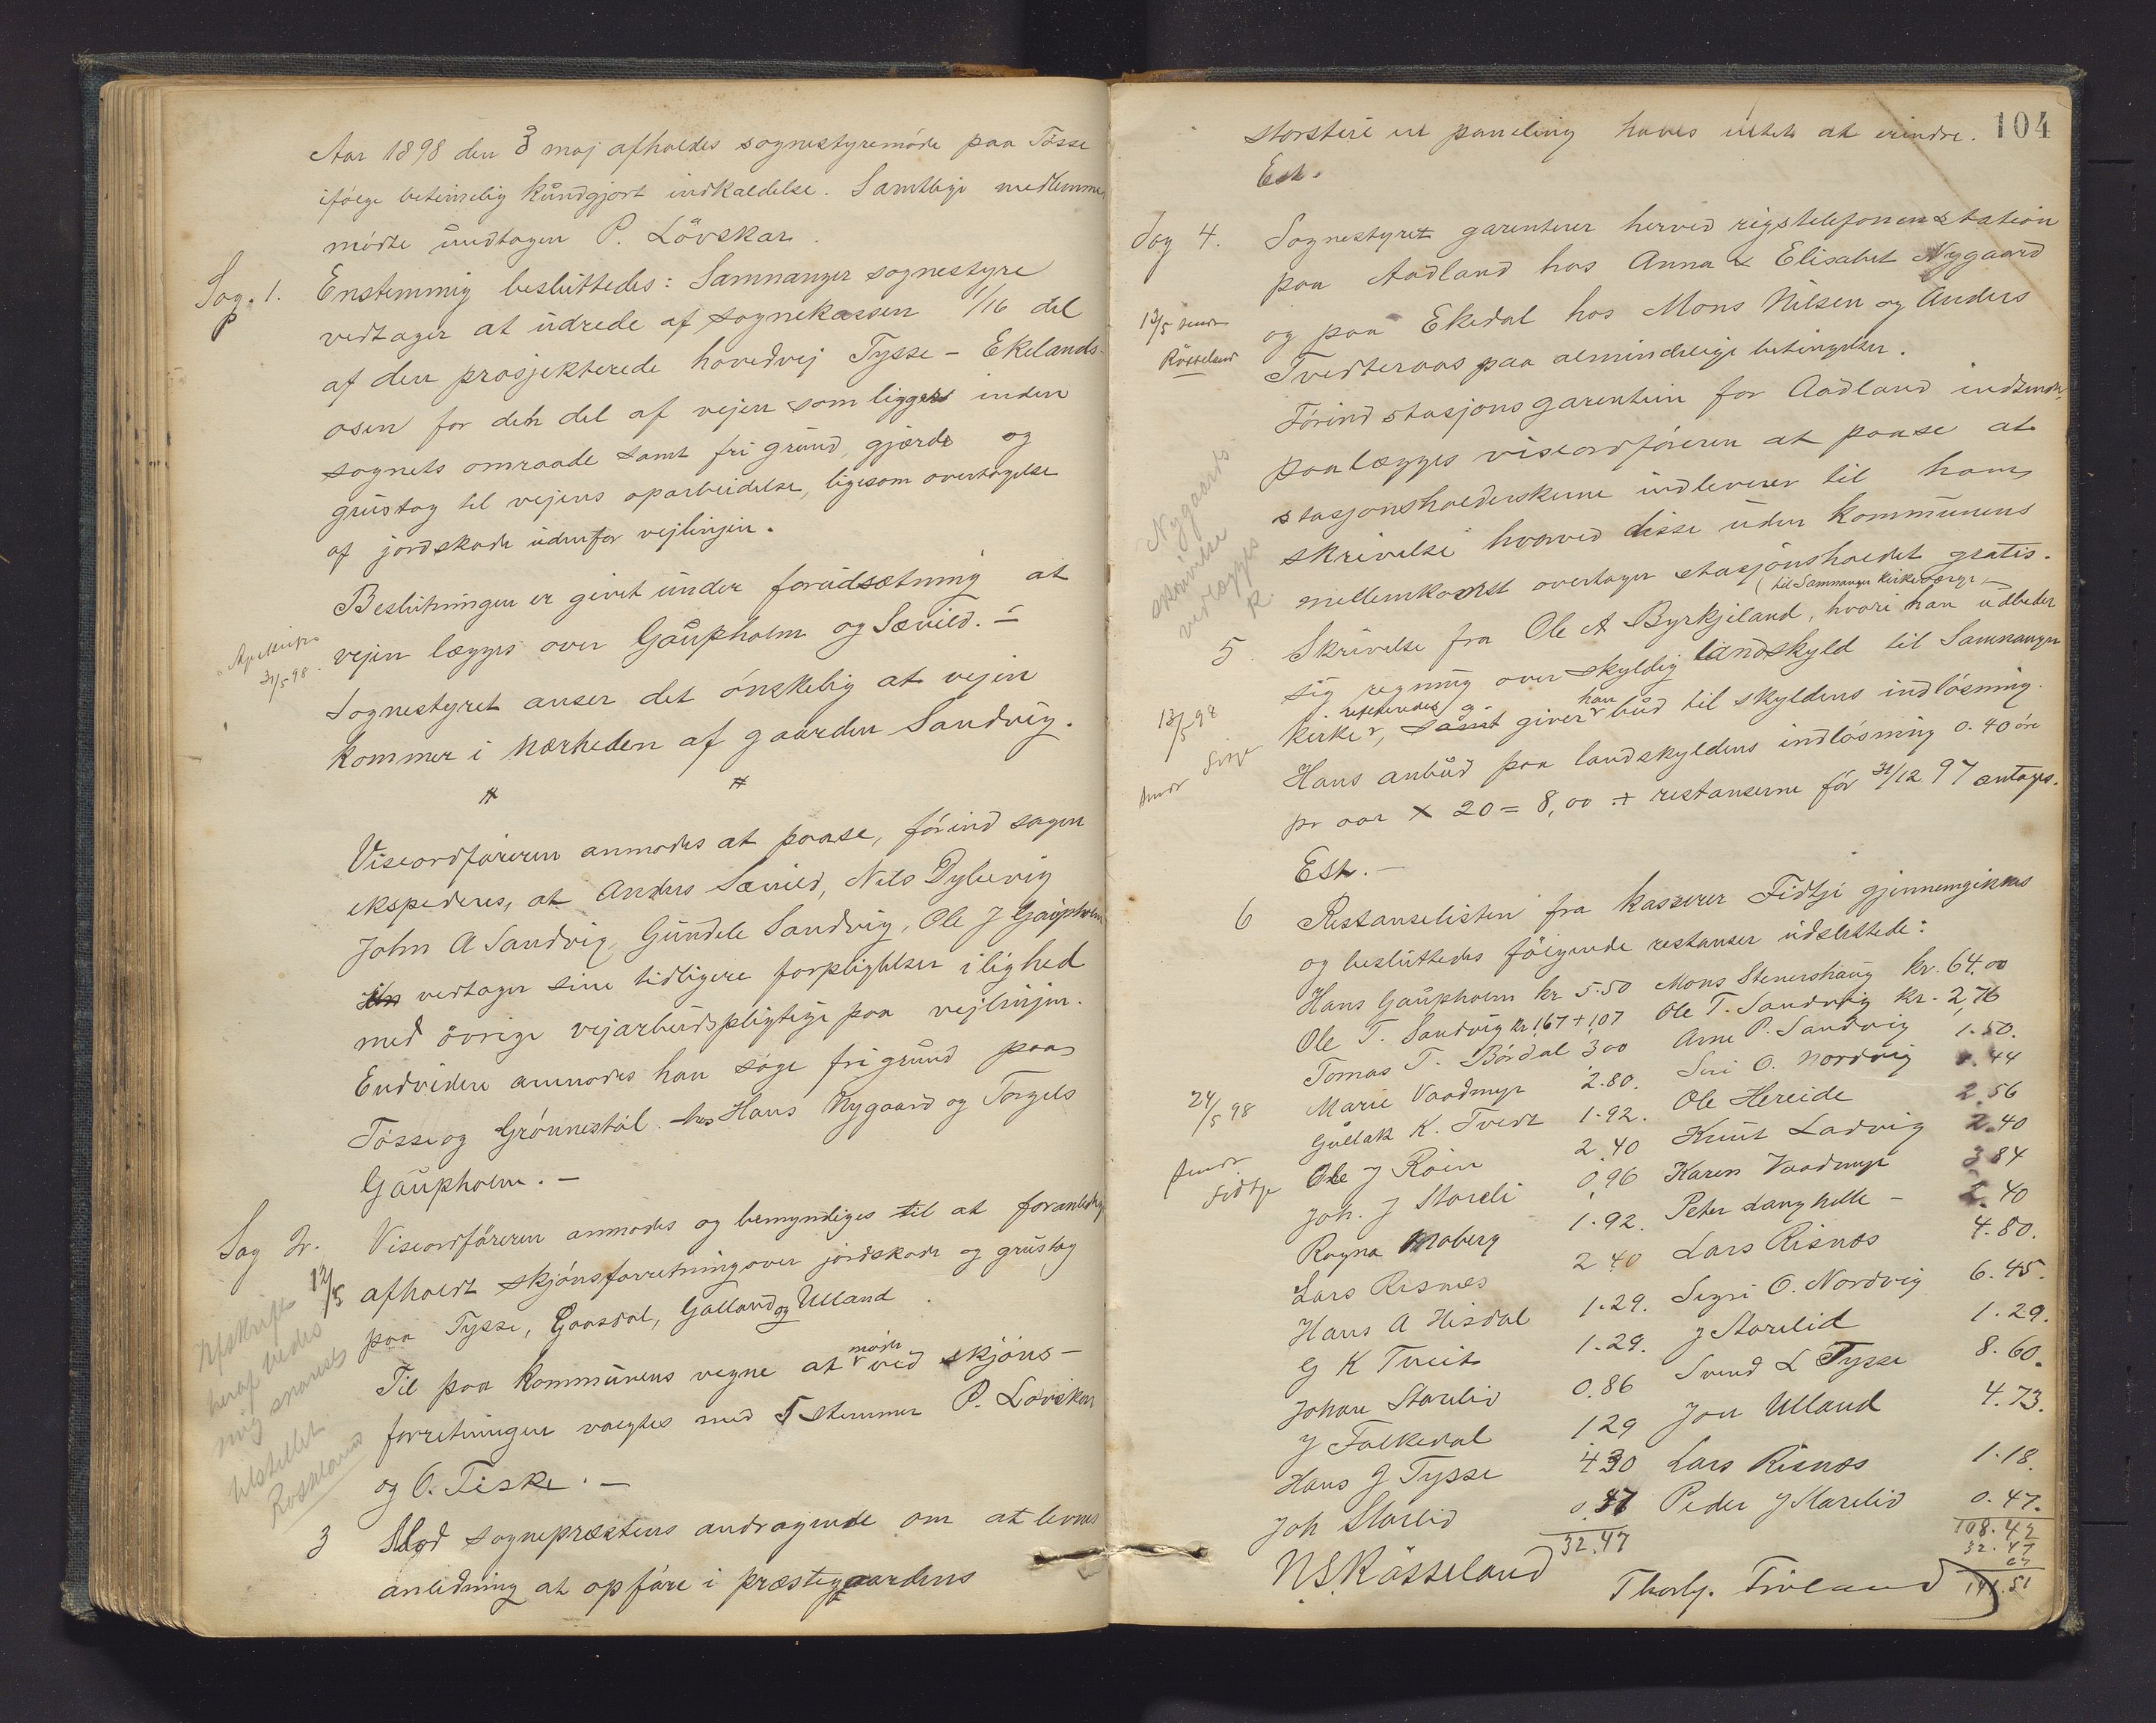 Aar 1898 den 3 maj afholdes sognestyremöde paa Tösse
ifölge betimelig kundgjort indkaldelse. Samtlige medlemmer
mödte undtagen P. Lövskar.
Sag. 1. Enstemmig besluttedes: Samnanger sognestyre
vedtager at udrede af sognekassen 1/16 del
af den prosjekterede hovedvej Tysse - Ekelands-
osen for den del af vejen som ligger inden
sognets omraade samt fri grund, gjærde og
grustag til vejens oparbeidelse, ligesom overtagelse
af jordskade udenfor vejlinjen.
Beslutningen er givet under forudsætning at
vejen lægges over Gaupholm og Sævild. -
31/5 98.
Sognestyret anser det önskelig at vejen
kommer i nærheden af gaarden Sandvig.
Viseordföreren anmodes at paase, förind sagen
ekspederes, at Anders Sævild, Nils Dyhevig
John A Sandvig, Gundele Sandvig, Ole J Gaupholm
vedtager sine tidligere forpligtelser i lighed
med övrige vejarbeidspligtige paa vejlinjen.
Endvidere anmodes han söge fri grund paa
Tösse og Grönnestöl hos Hans Nygaard og Torgels
Gaupholm. -
Sag 2. Viseordföreren anmodes og bemyndiges til at foranledig
12/5
afholdt skjönsforretning over jordskade og grustag
paa Tysse, Gaasdal, Galland og Ulland.
Afskrift
heraf bedes
mig snarest
tilstillet
Rosseland
Til paa kommunens vegne at möde ved skjöns-
forretningen valgtes med 5 stemmer P. Lövskar
og O. Tiske. -
3 Mod sognepræstens andragende om at levnes
anledning at opföre i præstegaardens
104
storstue ny paneling haves intet at erindre.
Est.
Sag 4. Sognestyret garenterer herved rigstelefonenstation
paa Aadland hos Anna & Elisabet Nygaard
13/5 sendt
Rösseland
og paa Ekedal hos Mons Nilsen og Anders
Tvedteraas paa almindelige betingelser.
Förind stasjonsgarentien for Aadland indsendes,
paalægges viseordföreren at paase at
stasjonsholderskerne indleverer til ham
Nygaards
skrivelse
vedlægges
R.
skrivelse hvorved disse uden kommunens
mellemkomst overtager stasjonsholdet gratis.
5. Skrivelse fra Ole A Byrkjeland, (til Samnanger kirkeværge) hvori han udbeder
sig regning over skyldig landskyld til Samnanger
13/5 98
kirke, refereredes og giver han bud til skyldens indlösning.
Hans anbud paa landskyldens indlösning 0.40 öre
pr aar x 20 = 8,00 + restanserne för 31/12 97 antages.
Est. -
6 Restanselisten fra kasserer Fidtje gjennemgikkes
og besluttedes fölgende restanser udslettede:
Hans Gaupholm kr 5.50 Mons Stenershaug kr. 64,00
Ole T. Sandvig kr 1,67 + 1,07 Ole T. Sandvig kr. 2,76
Tomas T. Bördal 3 00 Arne P. Sandvig 1.50.
24/5 98
Marie Vaadmyr 2.80. Siri O. Nordvig 0.44
Gullak K. Tvedt 1.92. Ole Hereide 2.56
sendt
Fidtje
Ole J Röin 2.40 Knut Ladvig 2.40
Joh. J Storeli 0,96 Karen Vaadmyr 3 84
Ragna Moberg 1.92. Peter Langhelle - 2.40
Lars Risnes 2 40 Lars Risnæs 4.80.
Hans A Hisdal 1.29. Sigri O. Nordvig 6.45.
G K Tveit 1.29. J Storelid 1.29.
Johan Storelid 0.86 Svend L Tysse 8.60.
J Falkedal 1 29 Jon Ulland 4.73.
Hans J Tysse 4 30 Lars Risnæs 1.18.
Joh Storlid 0.47 Peder J Storelid 0.47.
32.47
108.42
32.47
141.51
N S Rösseland Thorlj. Fröland